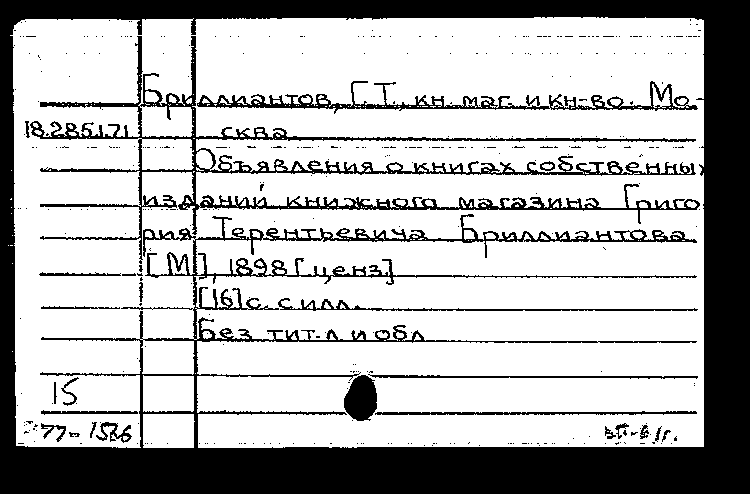 Бриллиантов, Г.Т., кн. маг. и кн-во. Мо-
18.285.1.71 сква.
Объявления о книгах собственных
изданий книжного магазина Григо
рия Терентьевича Бриллиантова
[М], 1898 [ценз]
[16] с. с илл.
Без тит. л и обл
15
77-1586